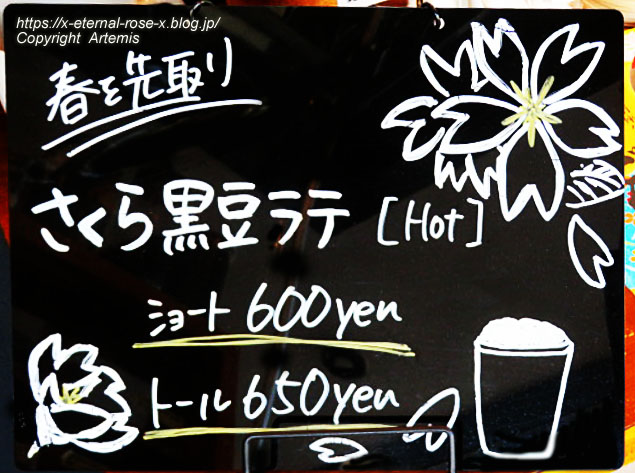 https://x-eternal-rose-x.blog.jp/
Copyright Artemis
春を先取り
さくら黒豆ラテ [Hot]
ショート 600yen
トール 650yen